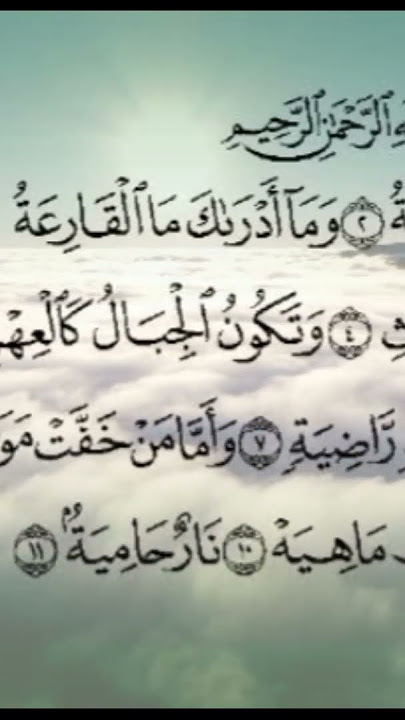 ٱلرَّحْمَٰنِ ٱلرَّحِيمِ
٢ وَمَآ أَدْرَىٰكَ مَا ٱلْقَارِعَةُ
٤ وَتَكُونُ ٱلْجِبَالُ كَٱلْعِهْنِ
رَّاضِيَةٍ ٧ وَأَمَّا مَنْ خَفَّتْ
مَا هِيَهْ ١٠ نَارٌ حَامِيَةٌۢ ١١